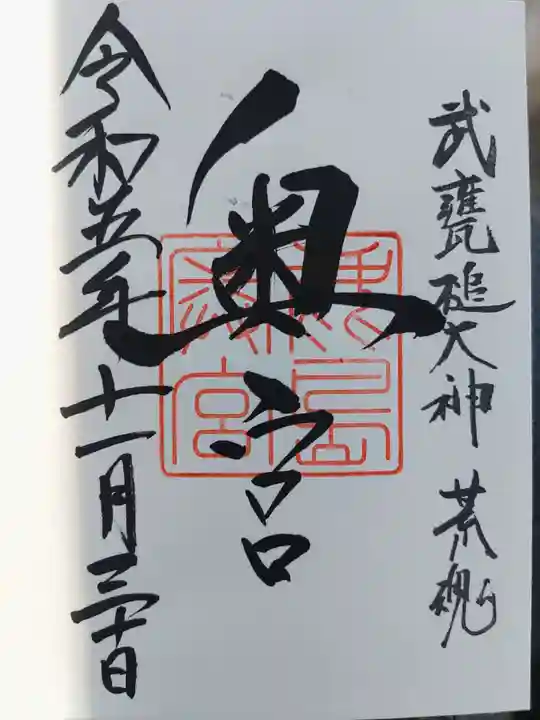 武甕槌大神 荒魂
奥宮
鹿島神宮
令和五年十一月三十日